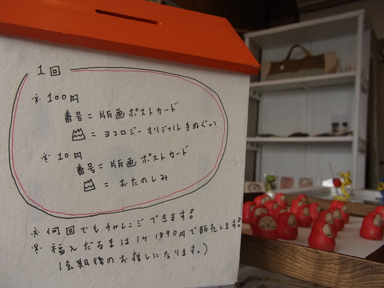 1回
※ 100円
番号 = 版画ポストカード
凸 = ヨコロジーオリジナル手ぬぐい
※ 10円
番号 = 版画ポストカード
= おたのしみ
※ 何回でもチャレンジできます!
※ 福んだるまは1ケ1890円で販売します!
(会期後のお渡しになります。)